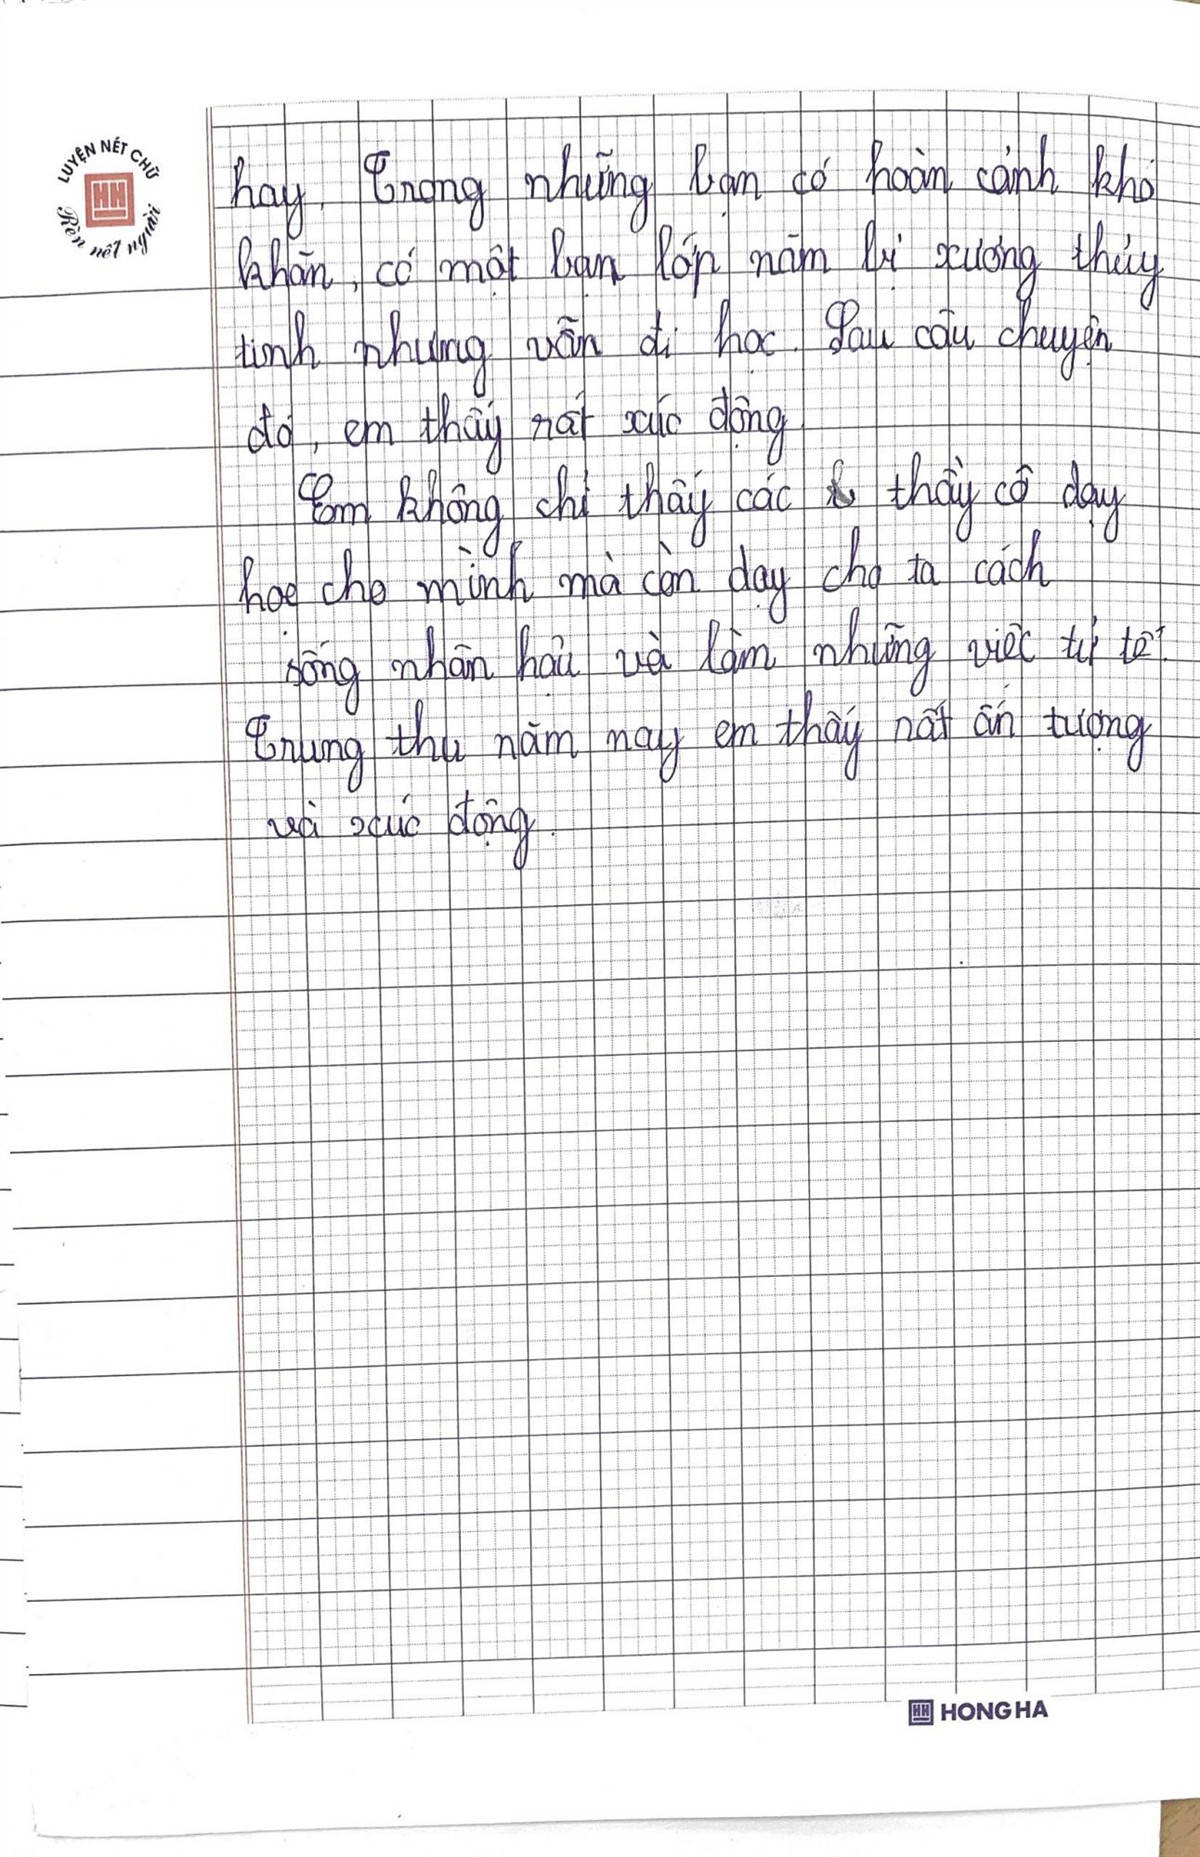 LUYỆN NÉT CHỮ
Rèn nết người
hay. Trong những bạn có hoàn cảnh khó
khăn, có một bạn lớp năm bị xương thủy
tinh nhưng vẫn đi học. Sau câu chuyện
đó, em thấy rất xúc động
Em không chỉ thấy các thầy cô dạy
học cho mình mà còn dạy cho ta cách
sống nhân hậu và làm những việc tử tế.
Trung thu năm nay em thấy rất ấn tượng
và xúc động.
HONG HA